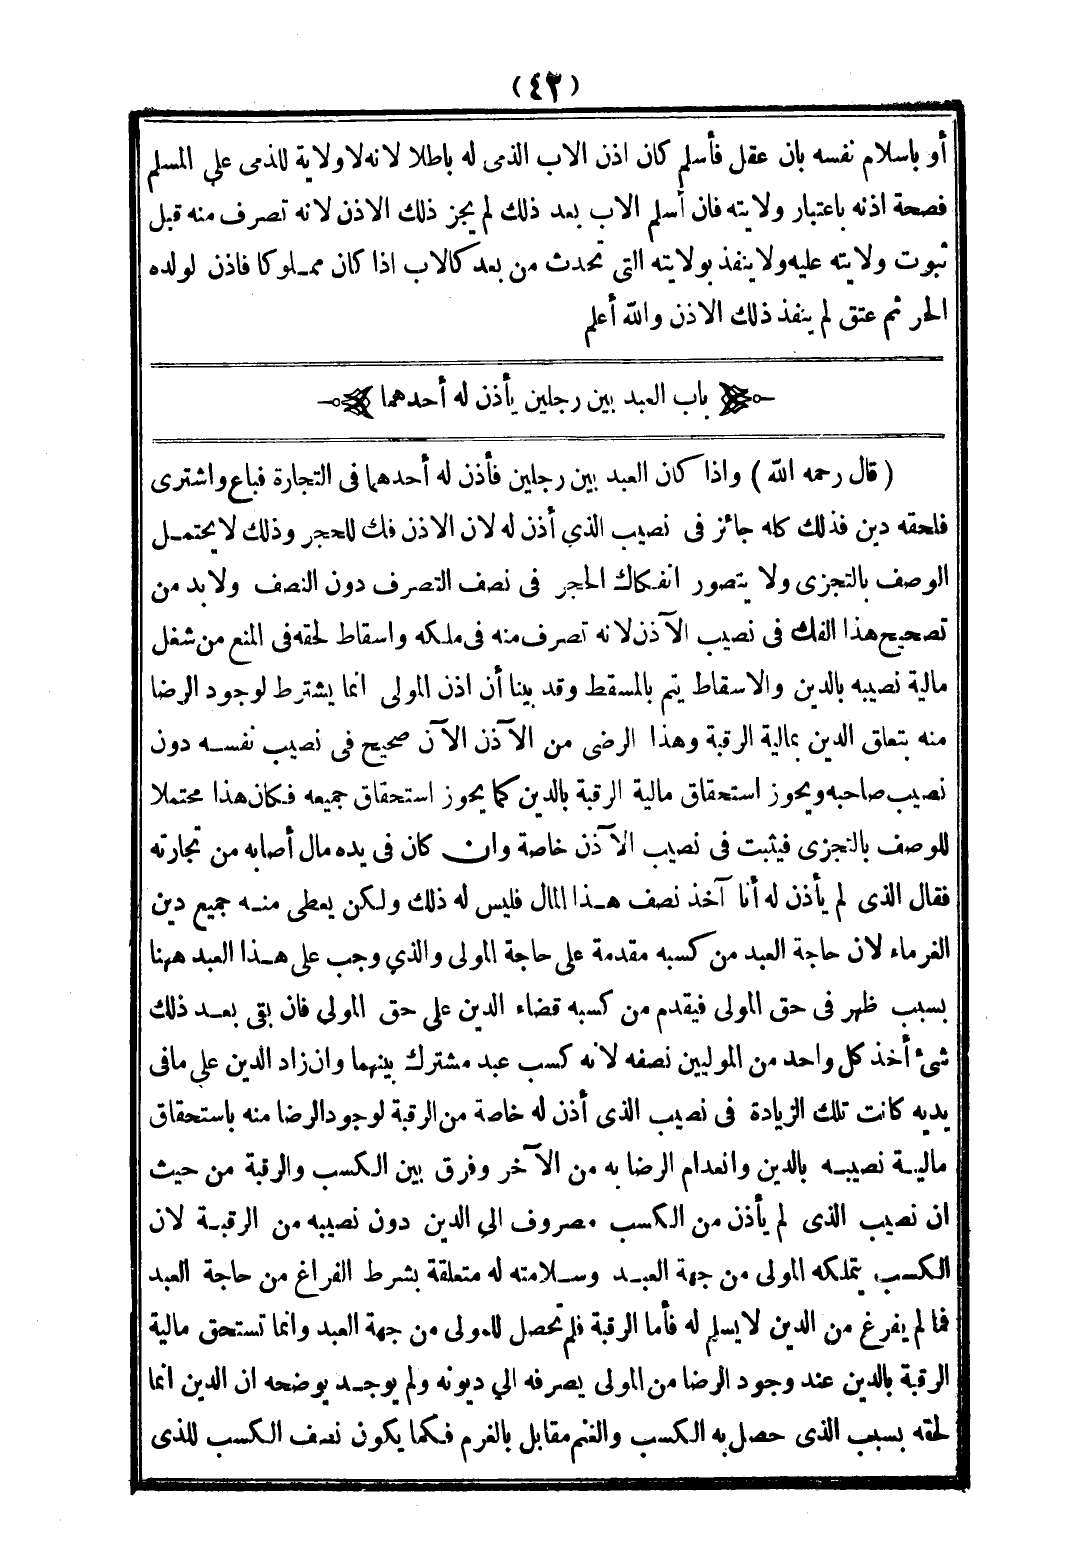 (٤٣)
أو باسلام نفسه بان عقل فأسلم كان اذن الاب الذمى له باطلا لانه لا ولاية للذمى علي المسلم
فصحة اذنه باعتبار ولايته فان أسلم الاب بعد ذلك لم يجز ذلك الاذن لانه تصرف منه قبل
ثبوت ولايته عليه ولا ينفذ بولايته التى تحدث من بعد كالاب اذا كان مملوكا فاذن لولده
الحر ثم عتق لم ينفذ ذلك الاذن والله أعلم
باب العبد بين رجلين يأذن له أحدهما
( قال رحمه الله ) واذا كان العبد بين رجلين فأذن له أحدهما فى التجارة فباع واشترى
فلحقه دين فذلك كله جائز فى نصيب الذي أذن له لان الاذن فك للحجر وذلك لا يحتمل
الوصف بالتجزى ولا يتصور انفكاك الحجر فى نصف التصرف دون النصف ولا بد من
تصحيح هذا الفك فى نصيب الآذن لانه تصرف منه فى ملكه واسقاط لحقه فى المنع من شغل
مالية نصيبه بالدين والاسقاط يتم بالمسقط وقد بينا أن اذن المولى انما يشترط لوجود الرضا
منه بتعلق الدين بمالية الرقبة وهذا الرضى من الآذن الآن صحيح فى نصيب نفسه دون
نصيب صاحبه ويجوز استحقاق مالية الرقبة بالدين كما يجوز استحقاق جميعه فكان هذا محتملا
للوصف بالتجزى فيثبت فى نصيب الآذن خاصة وان كان فى يده مال أصابه من تجارته
فقال الذى لم يأذن له أنا آخذ نصف هذا المال فليس له ذلك ولكن يعطى منه جميع دين
الغرماء لان حاجة العبد من كسبه مقدمة على حاجة المولى والذي وجب على هذا العبد ههنا
بسبب ظهر فى حق المولى فيقدم من كسبه قضاء الدين علي حق المولي فان بقى بعد ذلك
شئ أخذ كل واحد من الموليين نصفه لانه كسب عبد مشترك بينهما وان زاد الدين علي مافى
يديه كانت تلك الزيادة فى نصيب الذى أذن له خاصة من الرقبة لوجود الرضا منه باستحقاق
مالية نصيبه بالدين وانعدام الرضا به من الآخر وفرق بين الكسب والرقبة من حيث
ان نصيب الذى لم يأذن من الكسب مصروف الي الدين دون نصيبه من الرقبة لان
الكسب يتملكه المولى من جهة العبد وسلامته له متعلقة بشرط الفراغ من حاجة العبد
فما لم يفرغ من الدين لا يسلم له فأما الرقبة فلم تحصل للمولى من جهة العبد وانما تستحق مالية
الرقبة بالدين عند وجود الرضا من المولى يصرفه الي ديونه ولم يوجد يوضحه ان الدين انما
لحقه بسبب الذى حصل به الكسب والغنم مقابل بالغرم فكما يكون نصف الكسب للذى